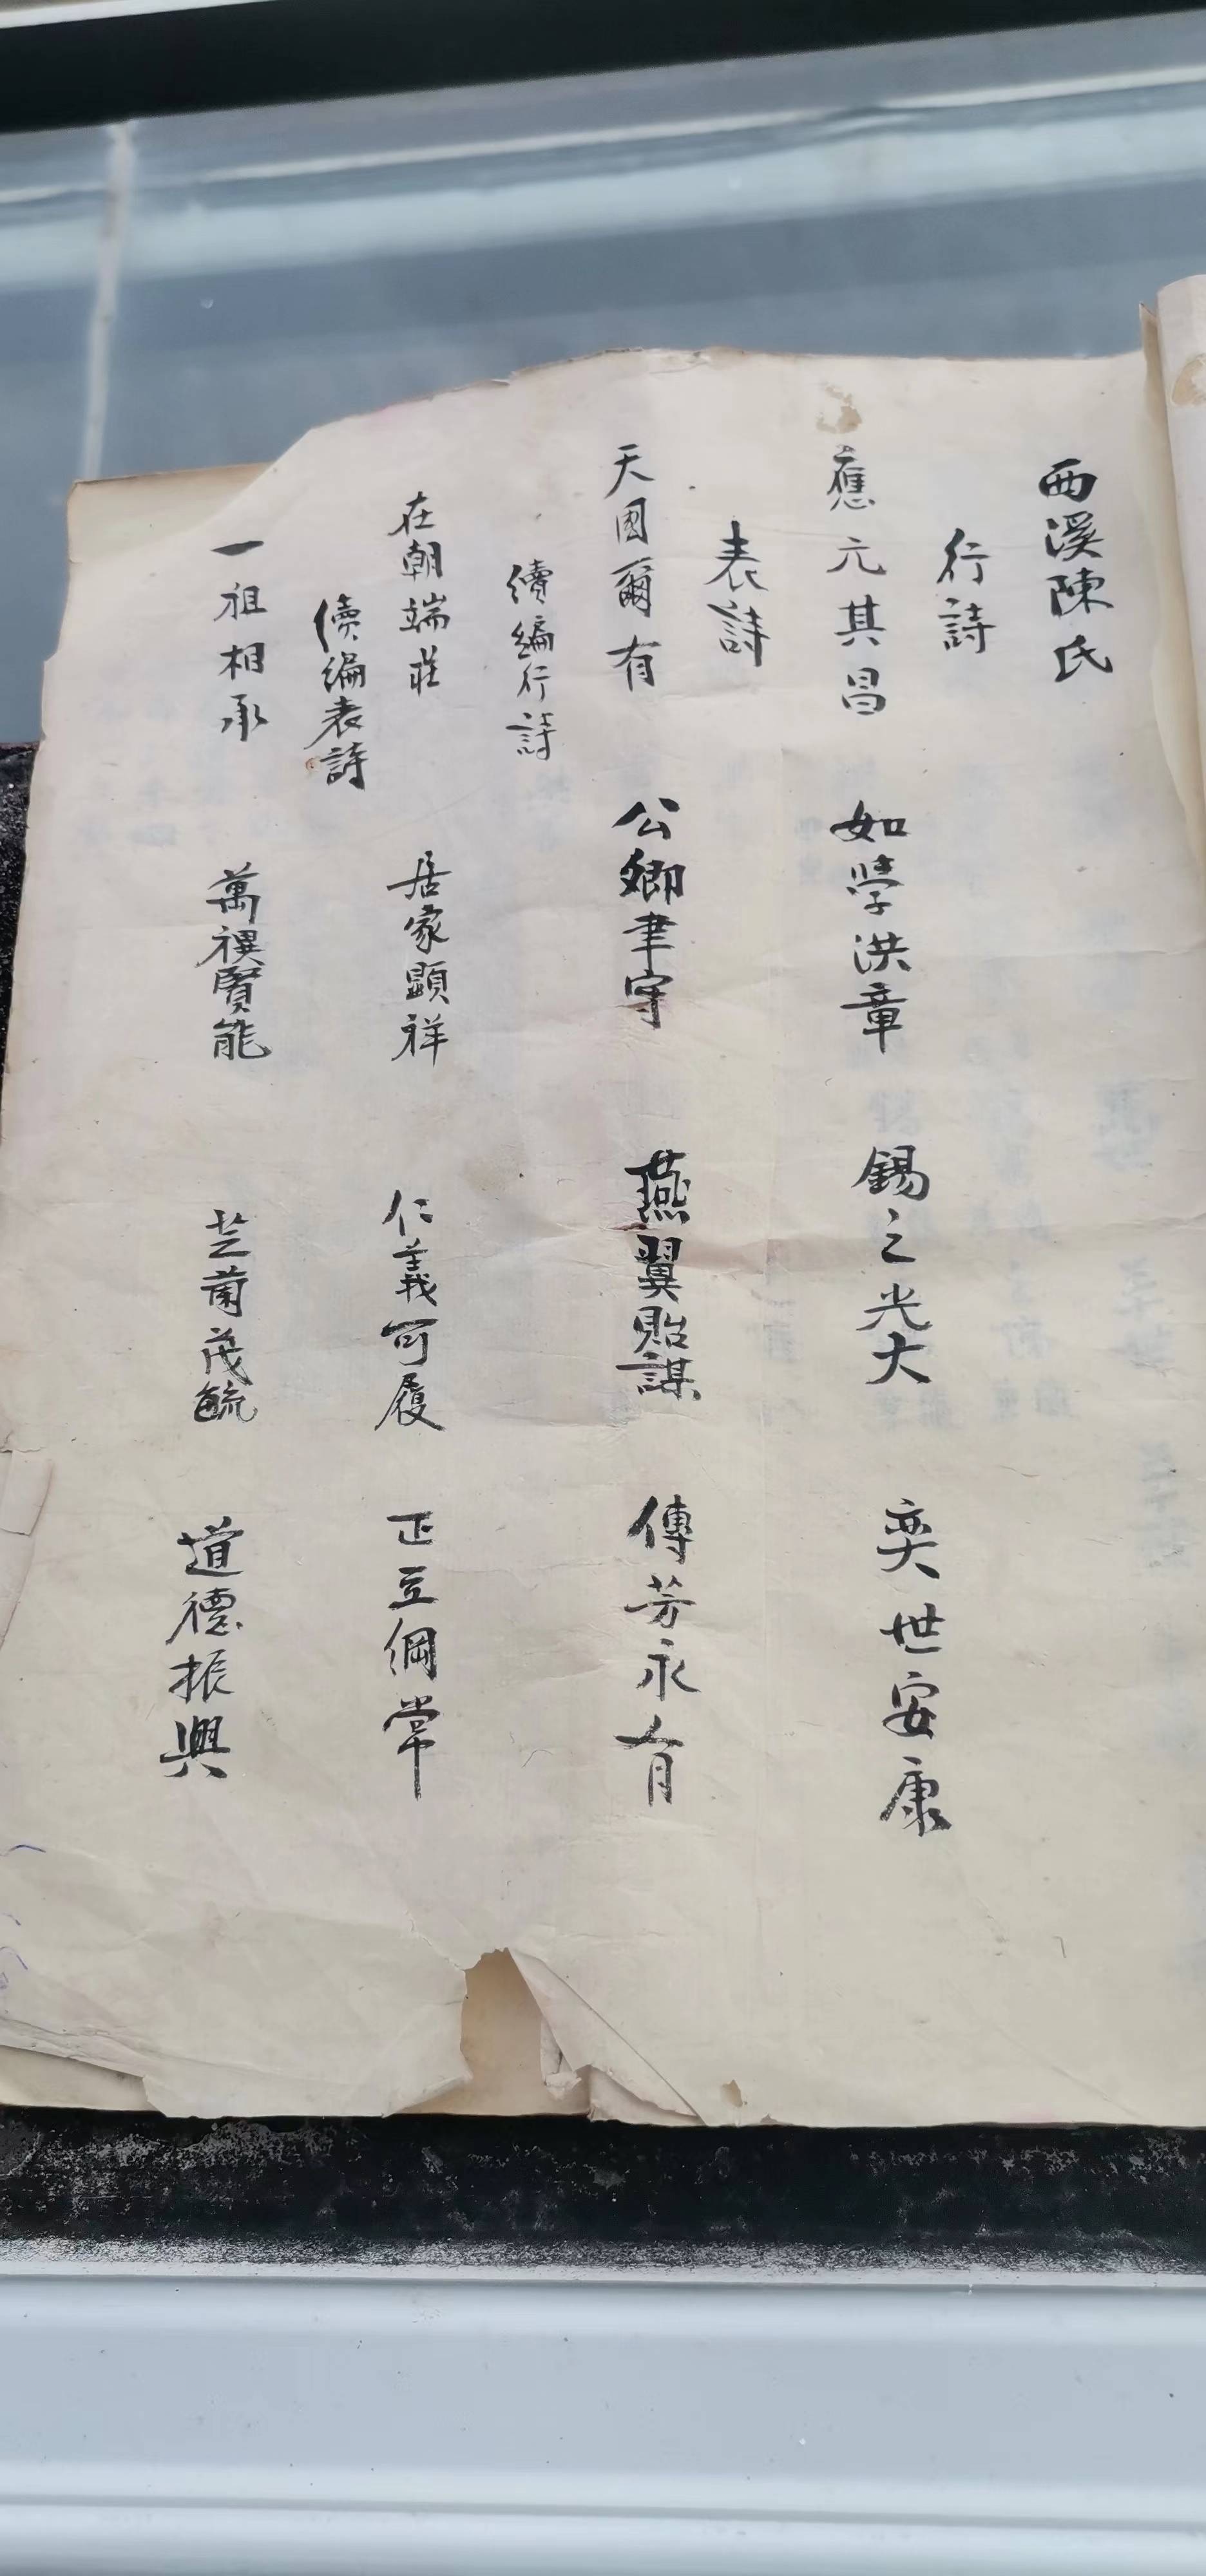 西溪陳氏
行詩
應元其昌 如學洪章 錫之光大 奕世安康
表詩
天國爾有 公卿聿守 燕翼貽謀 傳芳永有
續編行詩
在朝端莊 居家顯祥 仁義可履 正立綱常
續編表詩
一祖相承 萬禩賢能 芝蘭茂毓 道德振興